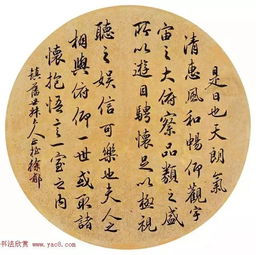 是日也天朗氣
清惠風和暢仰觀宇
宙之大俯察品類之盛
所以遊目騁懷足以極視
聽之娛信可樂也夫人之
相與俯仰一世或取諸
懷抱悟言一室之內
大人正徐郙
书法欣赏 www.yac8.com